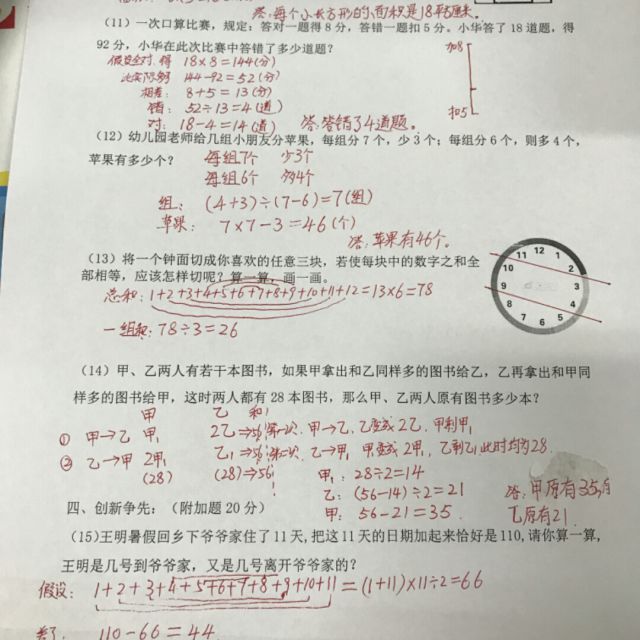 答:每个小长方形的面积是18平方厘米。
(11)一次口算比赛,规定:答对一题得8分,答错一题扣5分。小华答了18道题,得
92分,小华在此次比赛中答错了多少道题?
加8
假设全对:得 18×8=144(分)
比实际多 144-92=52(分)
相差: 8+5=13(分)
错: 52÷13=4(道)
扣5
对: 18-4=14(道) 答:答错了4道题。
(12)幼儿园老师给几组小朋友分苹果,每组分7个,少3个;每组分6个,则多4个,
苹果有多少个? 每组7个 少3个
每组6个 多4个
组: (4+3)÷(7-6)=7(组)
苹果: 7×7-3=46(个)
答:苹果有46个。
(13)将一个钟面切成你喜欢的任意三块,若使每块中的数字之和全
部相等,应该怎样切呢?算一算,画一画。
总和:1+2+3+4+5+6+7+8+9+10+11+12=13×6=78
一组和:78÷3=26
12 1 2 3 4 5 6 7 8 9 10 11
(14)甲、乙两人有若干本图书,如果甲拿出和乙同样多的图书给乙,乙再拿出和甲同
样多的图书给甲,这时两人都有28本图书,那么甲、乙两人原有图书多少本?
甲 乙 和
① 甲→乙 甲1 2乙→56 第一次:甲→乙,乙变成2乙,甲剩甲1
② 乙→甲 2甲1 乙1→56 第二次:乙→甲,甲变成2甲1,乙剩乙1 此时均为28.
(28) (28)→56 甲1:28÷2=14
乙:(56-14)÷2=21 答:甲原有35,
甲:56-21=35. 乙原有21
四、创新争先:(附加题20分)
(15)王明暑假回乡下爷爷家住了11天,把这11天的日期加起来恰好是110,请你算一算,
王明是几号到爷爷家,又是几号离开爷爷家的?
假设: 1+2+3+4+5+6+7+8+9+10+11=(1+11)×11÷2=66
110-66=44